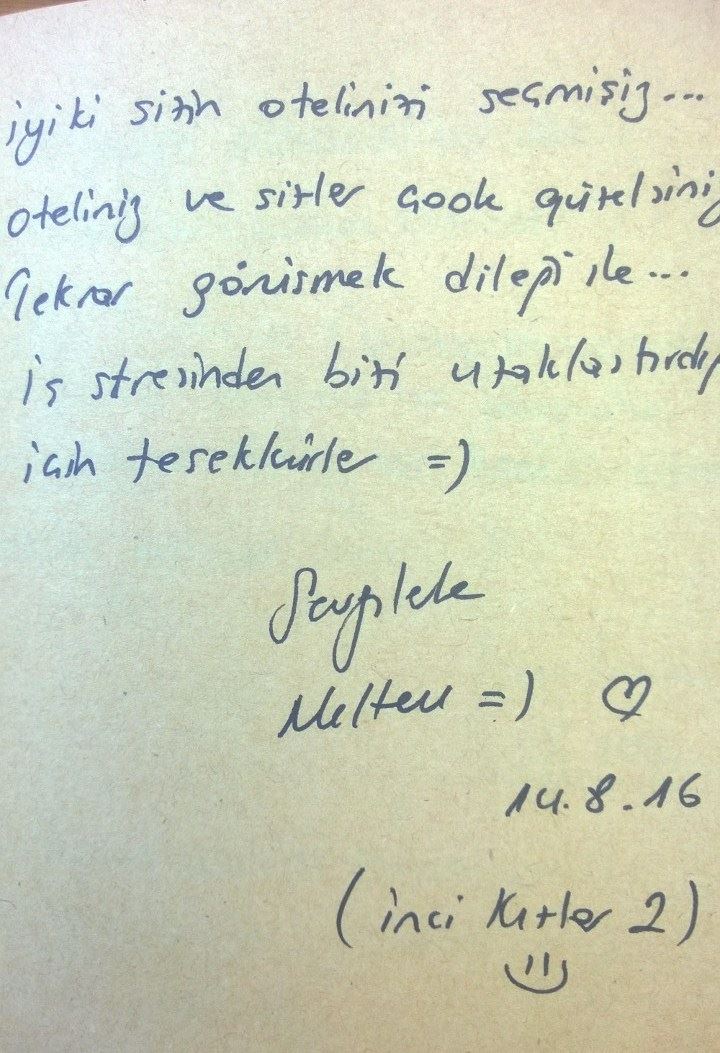 iyiki sizin otelinizi seçmişiz...
oteliniz ve sizler çook güzelsiniz
Tekrar görüşmek dileği ile...
İş stresinden bizi uzaklaştırdığ
için teşekkürler =)
Sevgilerle
Meltem =) ♡
14.8.16
(inci Kızlar 2)